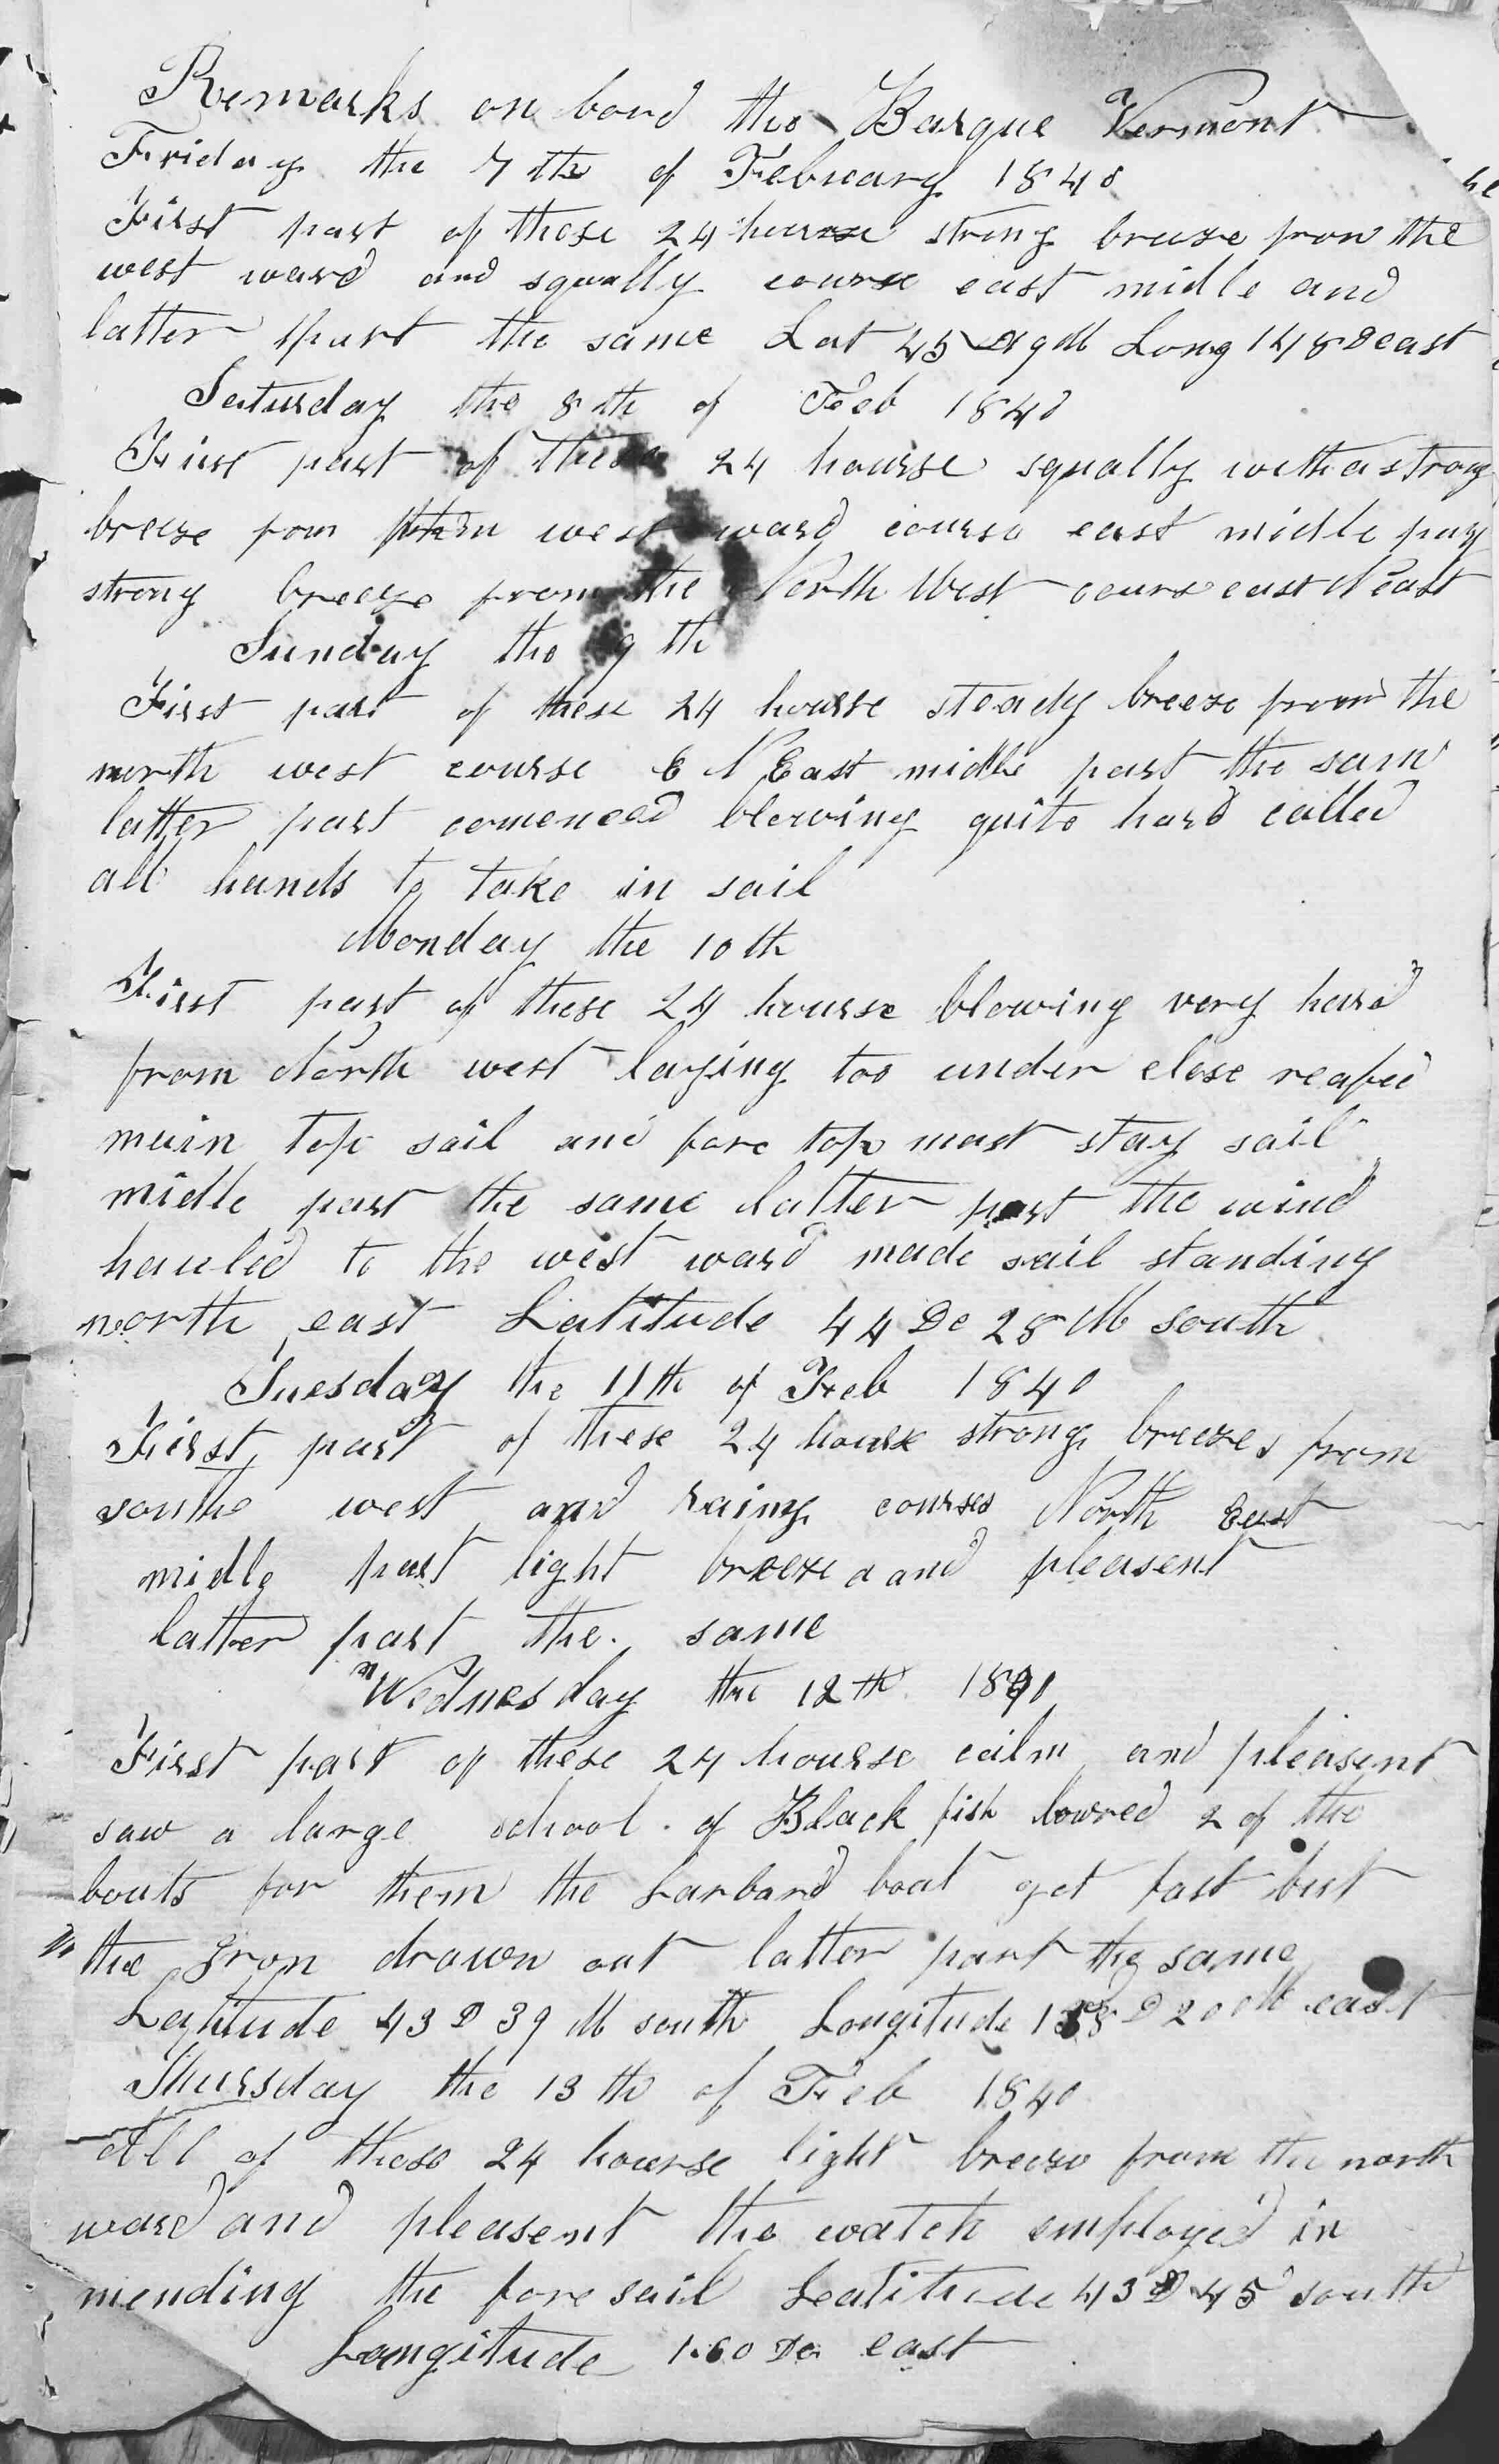 Remarks on bord the Barque Vermont
Friday the 7th of February 1840
First part of these 24 hourse strong breeze from the
west ward and squally course east midle and
latter part the same Lat 45 Long 148 D east
Saturday the 8th of Feb 1840
First part of these 24 hourse squally with a strong
breeze from west ward course east midle part
strong breeze from the North West course east N east
Sunday the 9th
First part of these 24 hourse steady breeze from the
north west course E N East midle part the same
latter part comenced blowing quite hard called
all hands to take in sail
Monday the 10th
First part of these 24 hourse blowing very hard
from North west laying too under close reafed
main top sail and fore top mast stay sail
midle part the same latter part the wind
hauled to the west ward made sail standing
north east Latitude 44 De 28 M south
Tuesday the 11th of Feb 1840
First part of these 24 hourse strong breezes from
southe west and rainy courses North East
midle part light breeze a and pleasent
latter part the same
Wednesday the 12th 1840
First part of these 24 hourse calm and pleasent
saw a large school of Black fish lowred 2 of the
boats for them the Larbard boat got fast but
the Iron drawn out latter part the same
Latitude 43 D 39 M south Longitude D 20 M east
Thursday the 13th of Feb 1840
All of these 24 hourse light breeze from the north
ward and pleasent the watch employed in
mending the fore sail Leatitude 43 D 45 south
Longitude 160 De east